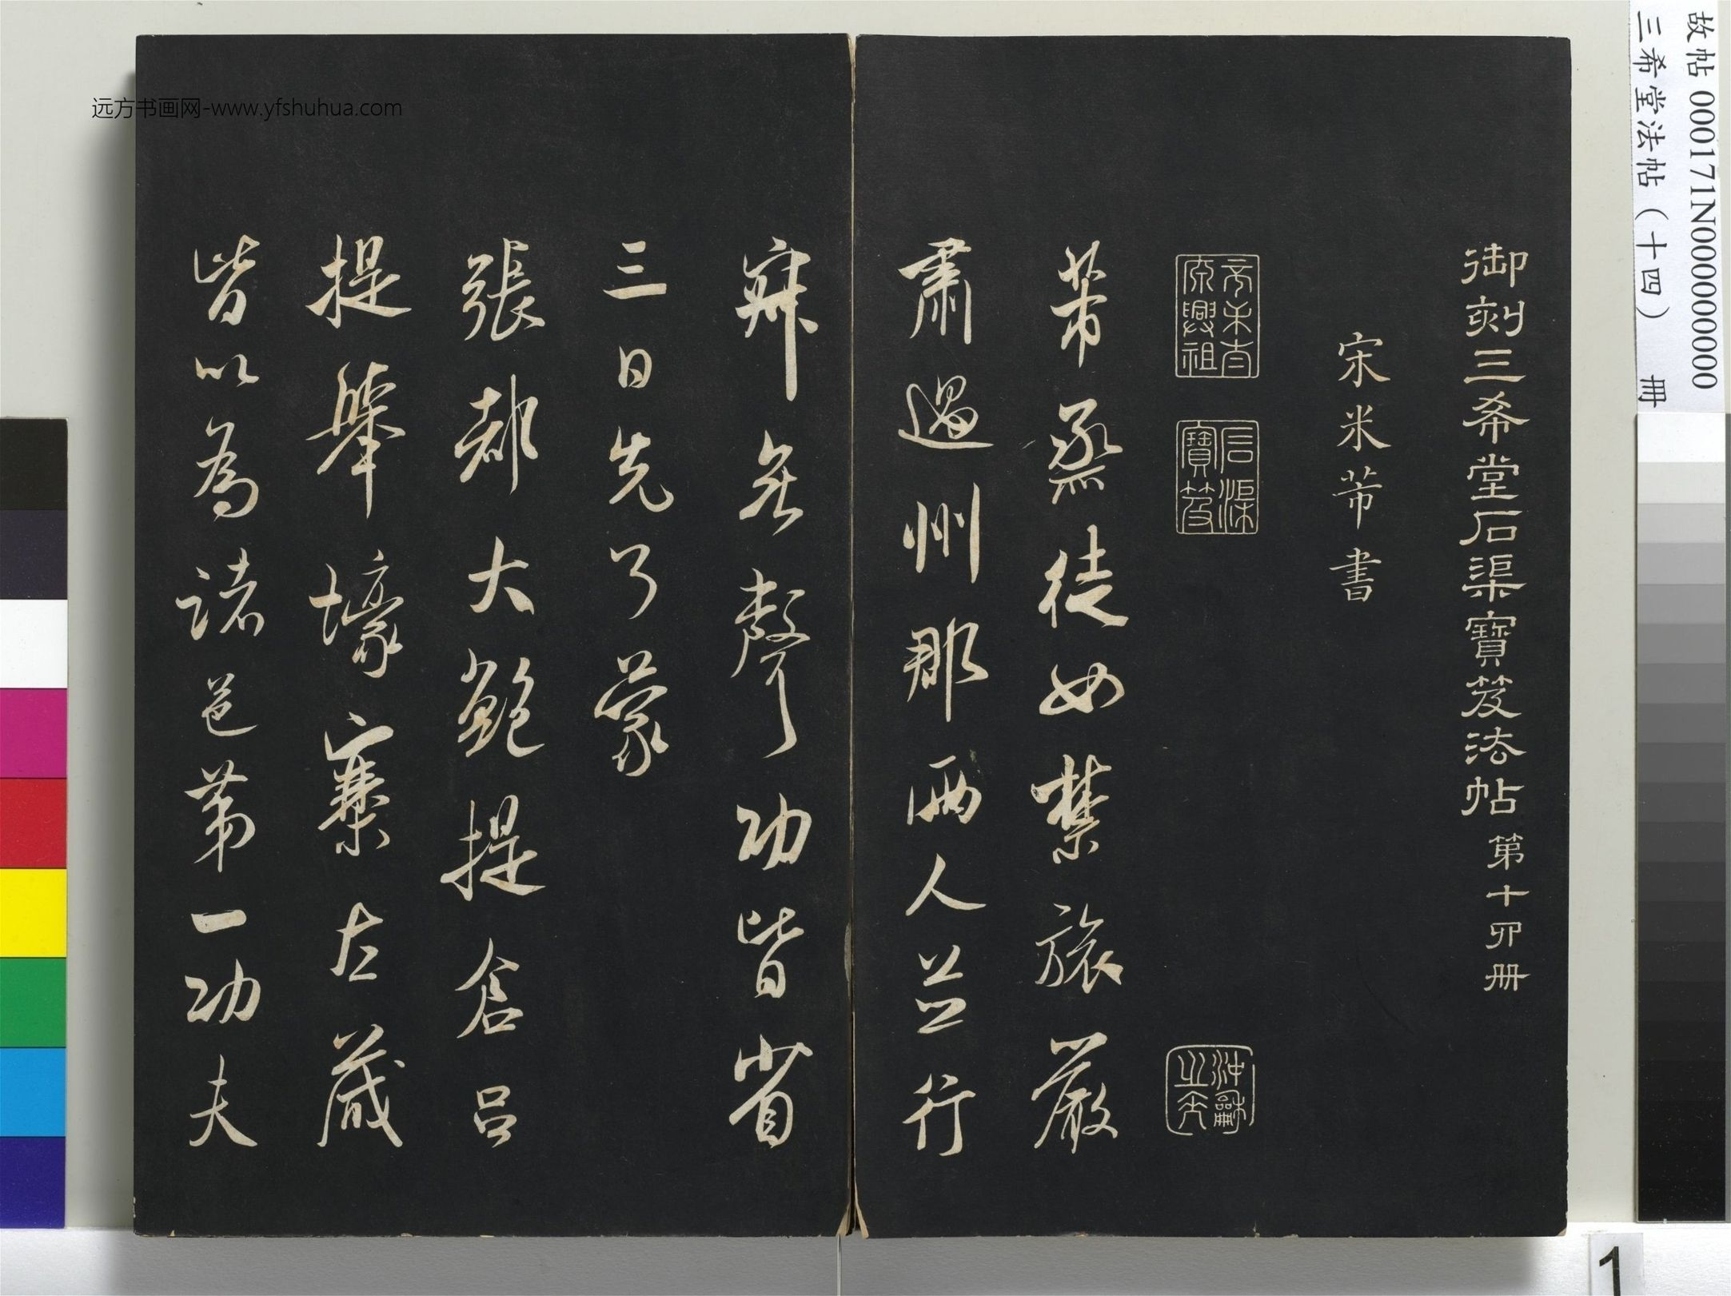 故帖 000171N000000000
三希堂法帖（十四） 冊
御刻三希堂石渠寶笈法帖第十四册
宋米芾書
石渠寶笈
芾烝徒如禁旅嚴
肅過州那兩人並行
寂無聲功皆省
三日先了蒙
張都大鮑提倉呂
提舉壕寨左藏
皆以為諸邑第一功夫
远方书画网-www.yfshuhua.com
1